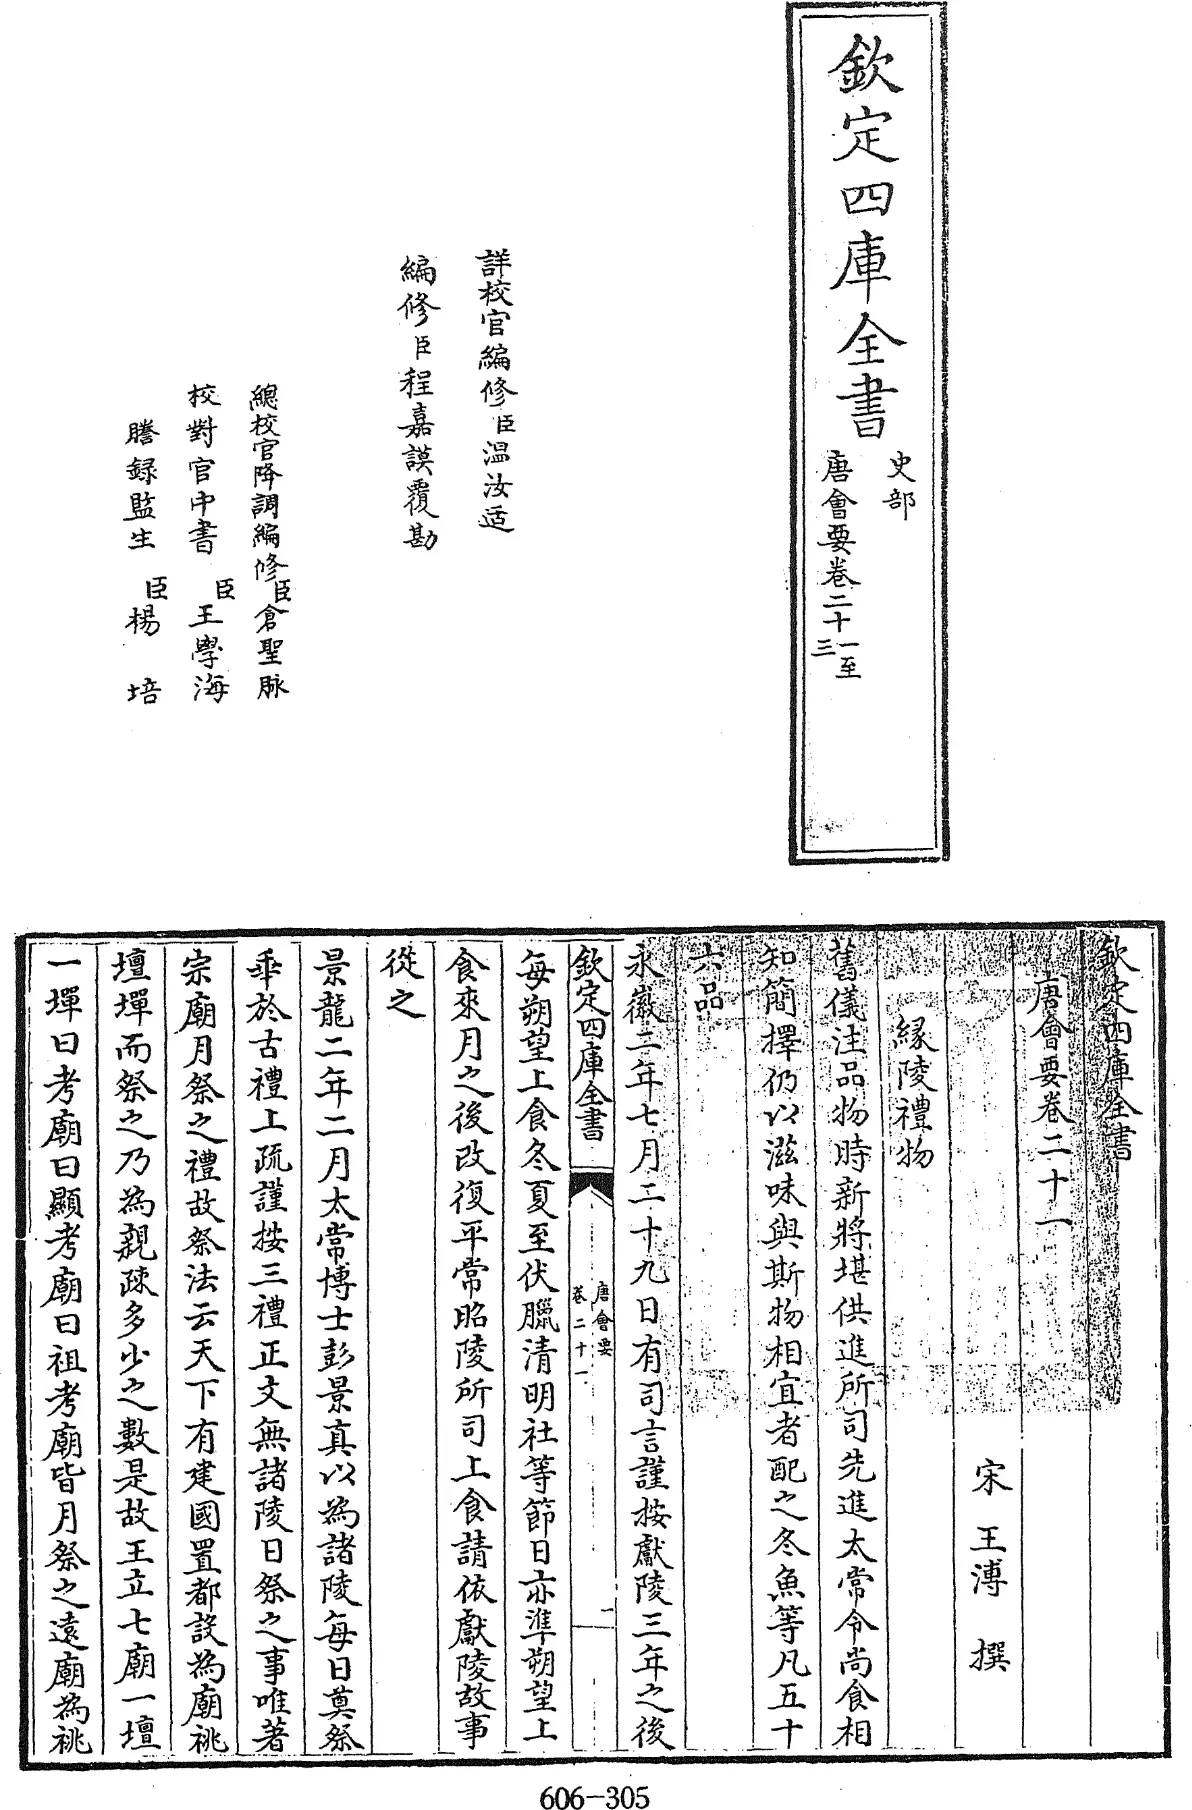 欽定四庫全書
史部
唐會要卷二十一至
三
詳校官編修臣温汝适
編修臣程嘉謨覆勘
總校官降調編修臣倉聖脉
校對官中書臣王學海
謄録監生臣楊培
欽定四庫全書
唐會要卷二十一
宋 王溥 撰
緣陵禮物
舊儀注品物時新將堪供進所司先進太常令尚食相
知簡擇仍以滋味與斯物相宜者配之冬魚等凡五十
六品
永徽二年七月二十九日有司言謹按獻陵三年之後
欽定四庫全書
唐會要
卷二十一
一
每朔望上食冬夏至伏臘清明社等節日亦準朔望上
食來月之後改復平常昭陵所司上食請依獻陵故事
從之
景龍二年二月太常博士彭景真以為諸陵每日奠祭
乖於古禮上疏謹按三禮正文無諸陵日祭之事唯著
宗廟月祭之禮故祭法云天下有建國置都設為廟祧
壇墠而祭之乃為親疎多少之數是故王立七廟一壇
一墠曰考廟曰顯考廟曰祖考廟皆月祭之遠廟為祧
606-305